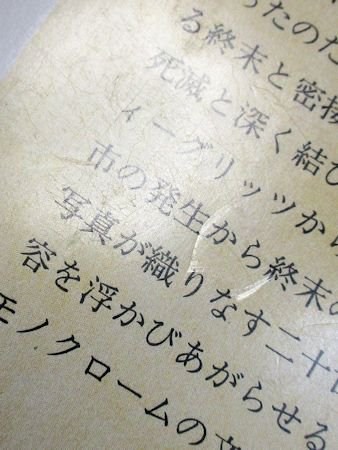 ったのだ
る終末と密接
死滅と深く結び
ィーグリッツから
市の発生から終末の
写真が織りなす二十
容を浮かびあがらせる
モノクロームの